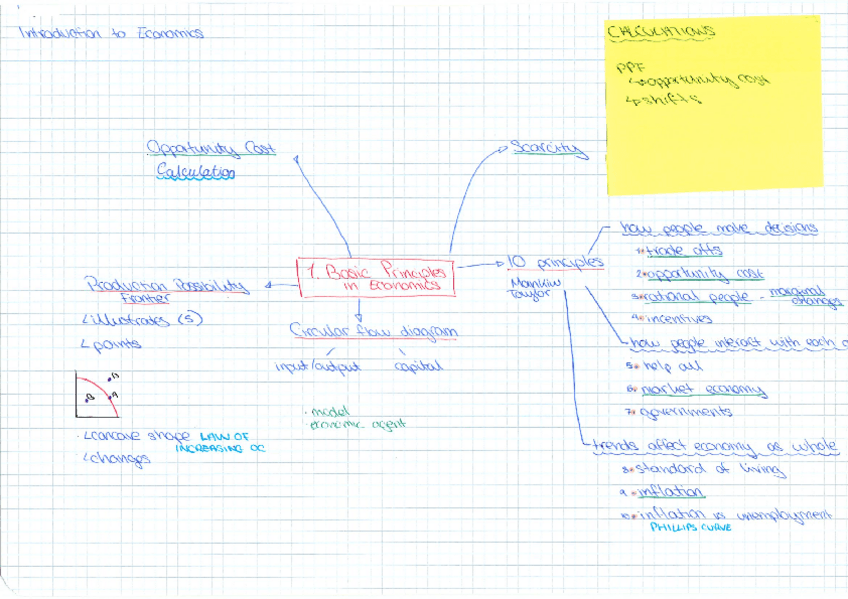 Introduction to Economics
CALCULATIONS
PPF
opportunity cost
shifts
Opportunity Cost
Calculation
Scarcity
1. Basic Principles
in Economics
10 principles
Mankiw
Taylor
how people make decisions
1 trade offs
2 opportunity cost
3 rational people - marginal
changes
4 incentives
how people interact with each o
5 help all
6 market economy
7 governments
trends affect economy as whole
8 standard of living
9 inflation
10 inflation vs unemployment
PHILLIPS CURVE
Production Possibility
Frontier
illustrates (5)
points
B
B A
concave shape LAW OF
INCREASING OC
changes
Circular flow diagram
input/output capital
· model
· economic agent